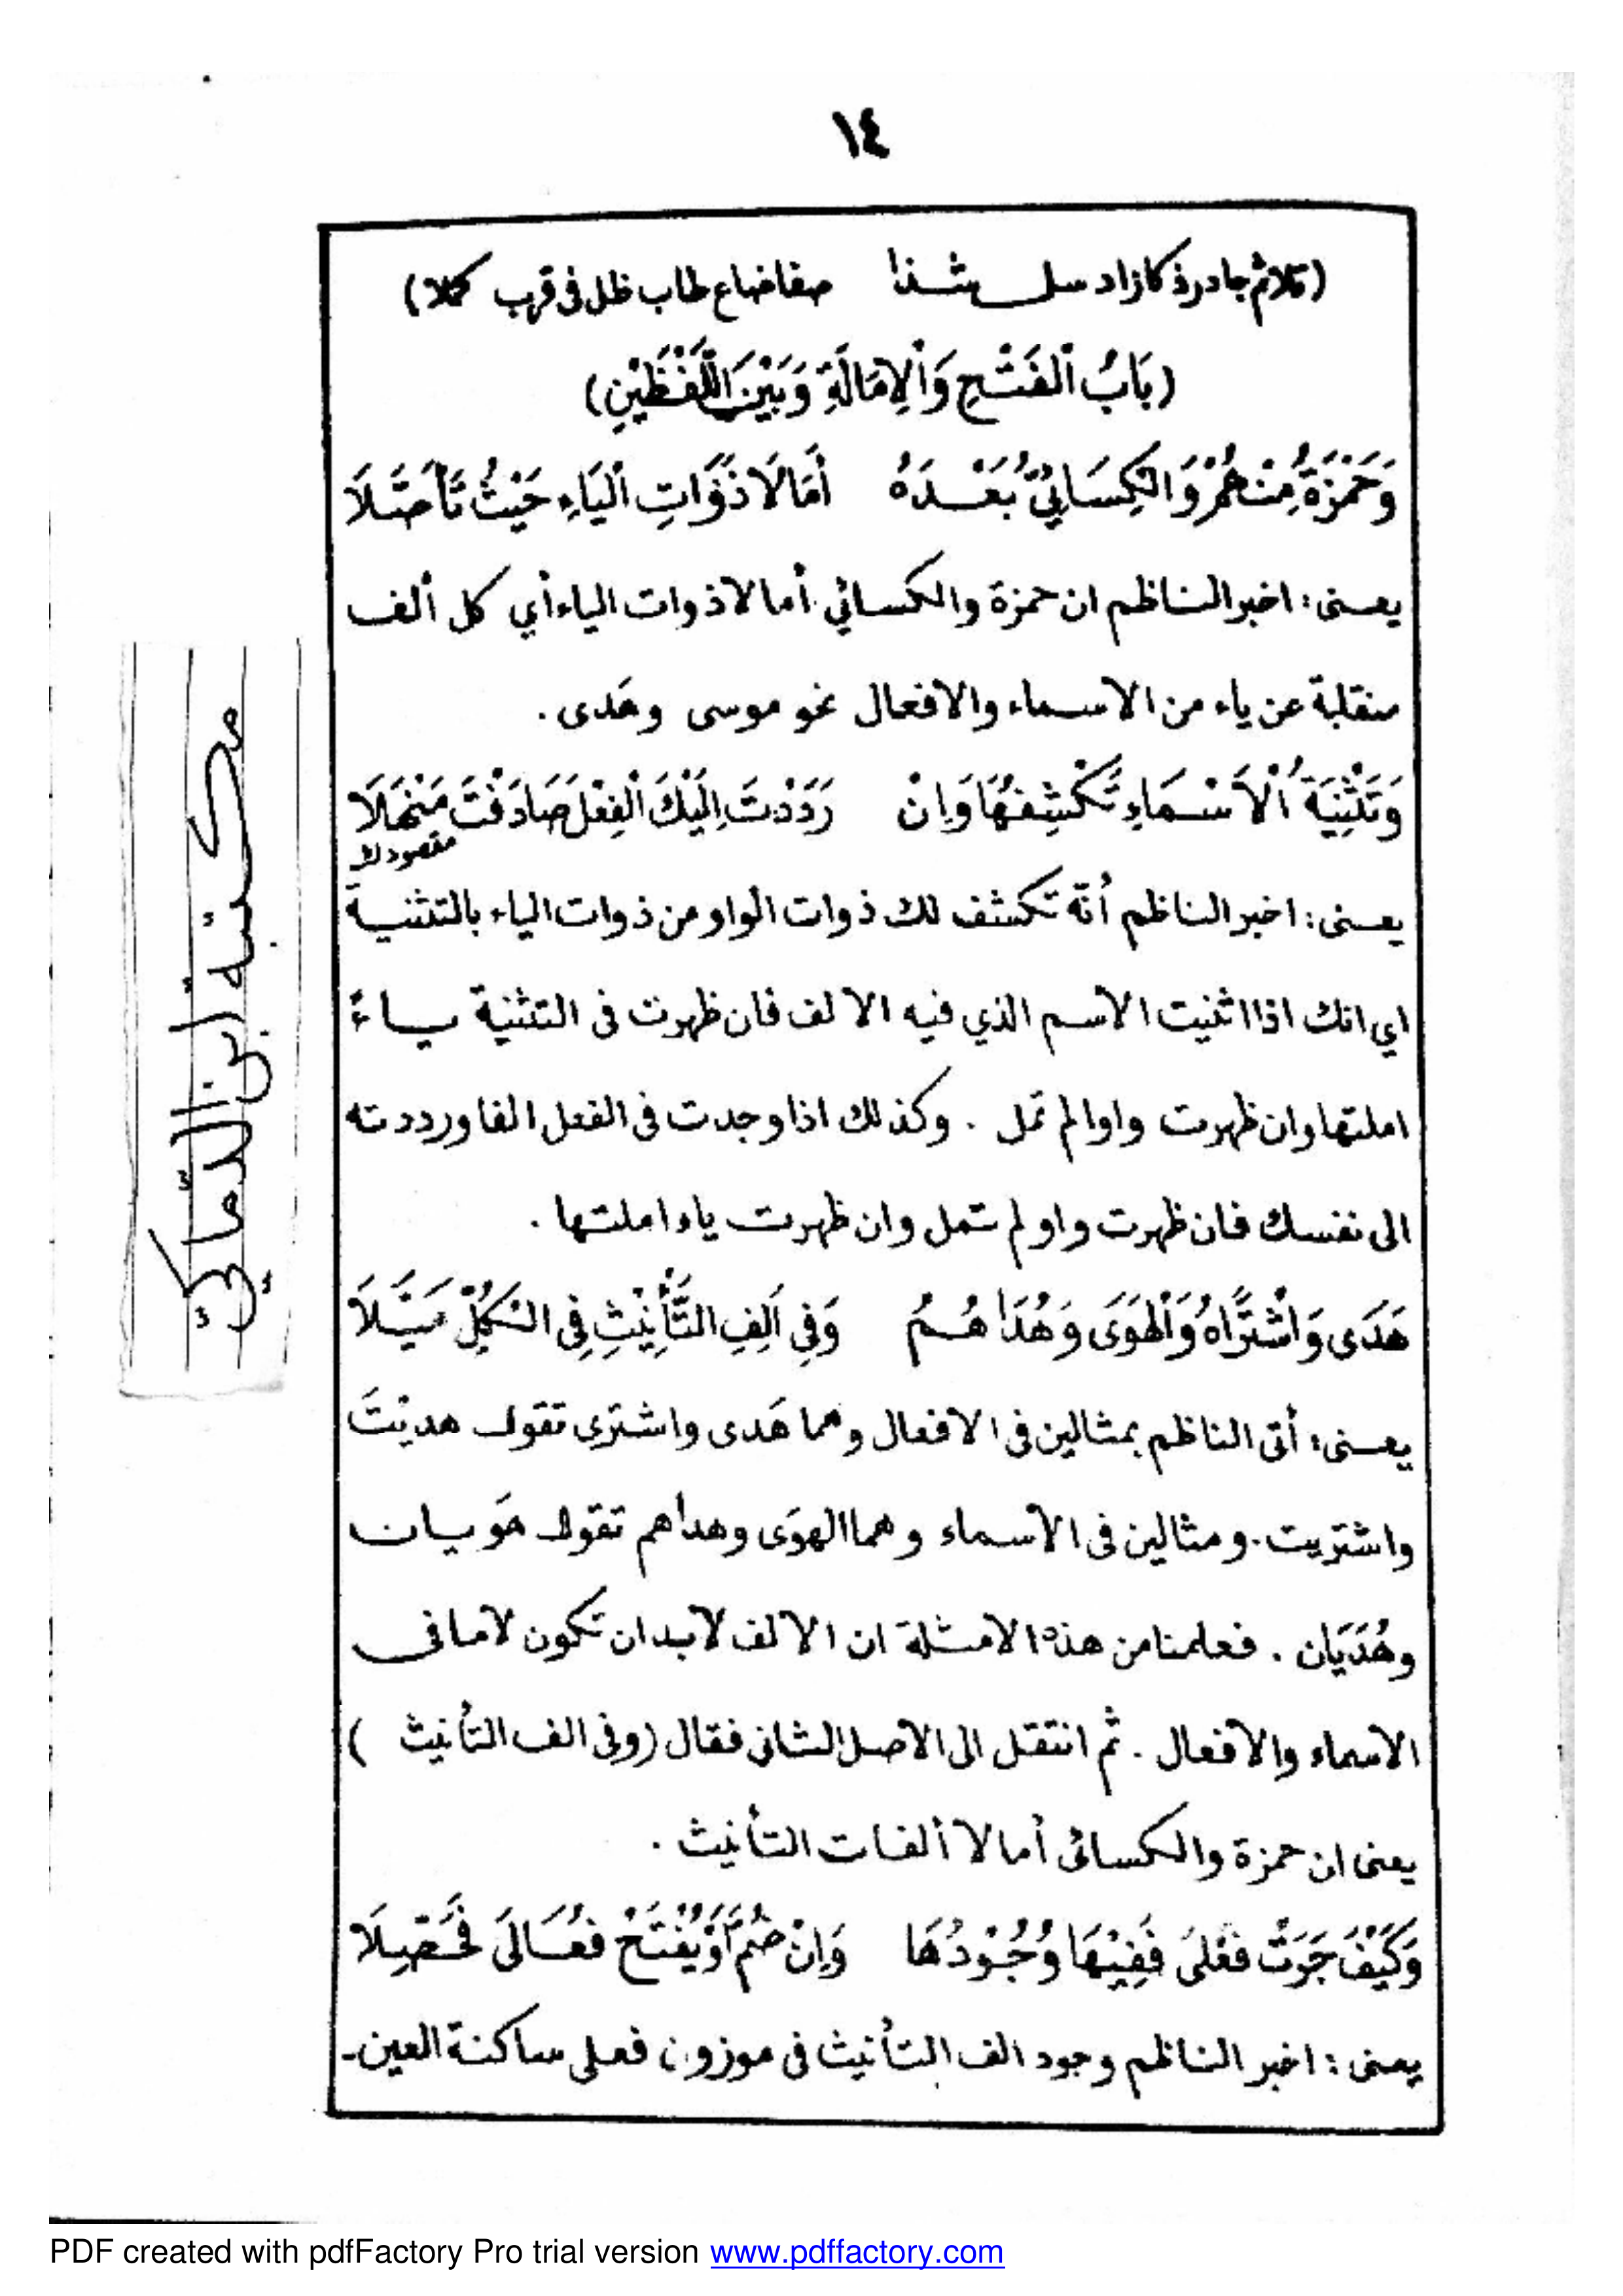 ١٤
(تلا ثم جا در ذكا زاد سل شذا صفا ضاع طاب ظل في قرب كملا)
(بَابُ الْفَتْحِ وَالْإِمَالَةِ وَبَيْنَ اللَّفْظَيْنِ)
وَحَمْزَةُ مِنْهُمْ وَالْكِسَائِيُّ بَعْدَهُ أَمَالَا ذَوَاتِ الْيَاءِ حَيْثُ تَأَصَّلَا
يعنى : اخبر الناظم ان حمزة والكسائي أمالا ذوات الياء أي كل ألف
منقلبة عن ياء من الاسماء والافعال نحو موسى وهَدى .
وَتَثْنِيَةُ الْأَسْمَاءِ تَكْشِفُهَا وَإِنْ رَدَدْتَ إِلَيْكَ الْفِعْلَ صَادَفْتَ مَنْهَلَا
مقصودك
يعنى : اخبر الناظم أنّه تكشف لك ذوات الواو من ذوات الياء بالتثنية
اي انك اذا اثنيت الاسم الذي فيه الالف فان ظهرت فى التثنية ياءً
املتها وان ظهرت واوا لم تمل . وكذلك اذا وجدت فى الفعل الفا ورددته
الى نفسك فان ظهرت واو لم تمل وان ظهرت ياء املتها .
هَدَى وَاشْتَرَاهُ وَالْهَوَى وَهُدَاهُمُ وَفِي أَلِفِ التَّأْنِيْثِ فِي الْكُلِّ مَيَّلَا
يعنى : أتى الناظم بمثالين فى الافعال وهما هَدى واشترى تقول هديتَ
واشتريت . ومثالين فى الاسماء وهما الهوَى وهداهم تقول هَوَيان
وهُدَيَان . فعلمنا من هذه الامثلة ان الالف لابد ان تكون لاما فى
الاسماء والافعال . ثم انتقل الى الاصل الثانى فقال (وفى الف التأنيث )
يعنى ان حمزة والكسائى أمالا ألفات التأنيث .
وَكَيْفَ جَرَتْ فَعْلَى فَفِيْهَا وُجُوْدُهَا وَإِنْ ضُمَّ أَوْ يُفْتَحْ فُعَالَى فَحَصِّلَا
يعنى : اخبر الناظم وجود الف التأنيث فى موزون فعلى ساكنة العين-
مكتبة ابن الدّماكيّ
PDF created with pdfFactory Pro trial version www.pdffactory.com